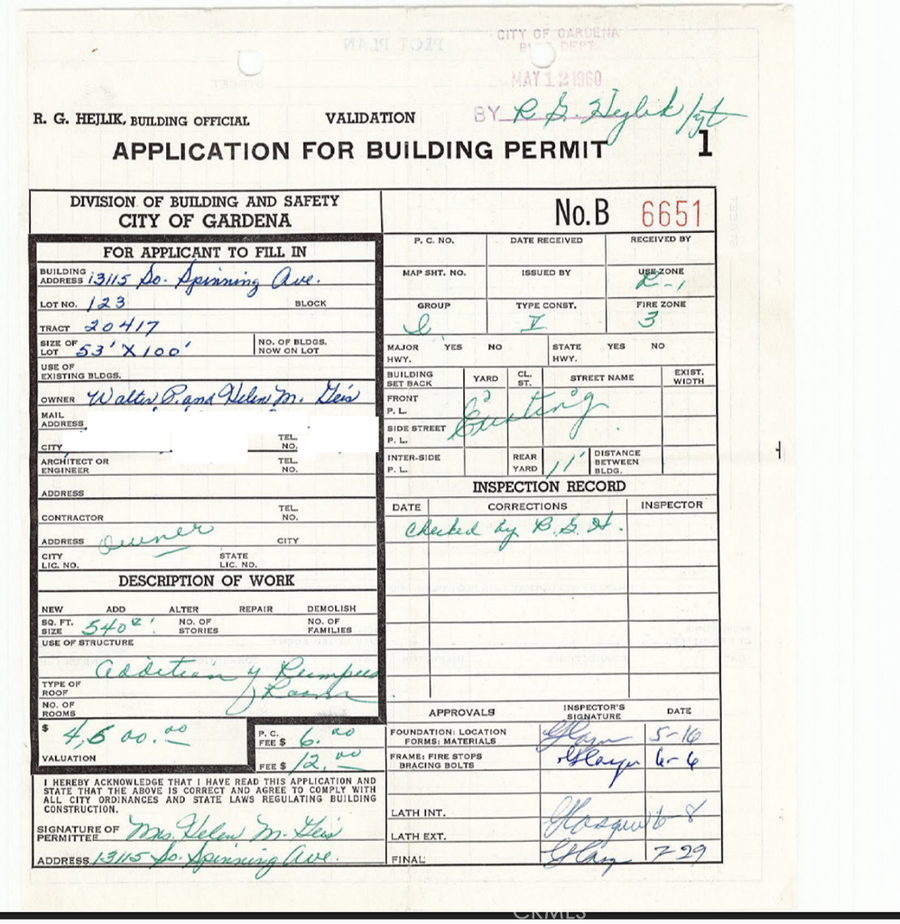 CITY OF GARDENA
DEPT.
MAY 12 1960
R. G. HEJLIK, BUILDING OFFICIAL VALIDATION BY R. G. Hejlik/
APPLICATION FOR BUILDING PERMIT 1
DIVISION OF BUILDING AND SAFETY
CITY OF GARDENA
No. B 6651
FOR APPLICANT TO FILL IN
BUILDING ADDRESS 13115 So. Spinning Ave.
LOT NO. 123 BLOCK
TRACT 20417
SIZE OF LOT 53' X 100' NO. OF BLDGS. NOW ON LOT
USE OF EXISTING BLDGS.
OWNER Walter P. and Helen M. Geis
MAIL ADDRESS
CITY TEL. NO.
ARCHITECT OR ENGINEER TEL. NO.
ADDRESS
CONTRACTOR TEL. NO.
ADDRESS Owner CITY
CITY LIC. NO. STATE LIC. NO.
DESCRIPTION OF WORK
NEW ADD ALTER REPAIR DEMOLISH
SQ. FT. SIZE 540 NO. OF STORIES NO. OF FAMILIES
USE OF STRUCTURE
Addition of Rumpus
Room
TYPE OF ROOF
NO. OF ROOMS
$ 4,500.00
VALUATION
P. C. FEE $ 6.00
FEE $ 12.00
I HEREBY ACKNOWLEDGE THAT I HAVE READ THIS APPLICATION AND
STATE THAT THE ABOVE IS CORRECT AND AGREE TO COMPLY WITH
ALL CITY ORDINANCES AND STATE LAWS REGULATING BUILDING
CONSTRUCTION.
SIGNATURE OF PERMITTEE Mrs. Helen M. Geis
ADDRESS 13115 So. Spinning Ave.
P. C. NO. DATE RECEIVED RECEIVED BY
MAP SHT. NO. ISSUED BY USE ZONE
R-1
GROUP TYPE CONST. FIRE ZONE
I V 3
MAJOR HWY. YES NO STATE HWY. YES NO
BUILDING SET BACK YARD CL. ST. STREET NAME EXIST. WIDTH
FRONT P. L.
Existing
SIDE STREET P. L.
INTER-SIDE P. L. REAR YARD 11' DISTANCE BETWEEN BLDG.
INSPECTION RECORD
DATE CORRECTIONS INSPECTOR
Checked by R. G. H.
APPROVALS INSPECTOR'S SIGNATURE DATE
FOUNDATION: LOCATION FORMS: MATERIALS 5-16
FRAME: FIRE STOPS BRACING BOLTS 6-6
LATH INT. Glasgow 6-8
LATH EXT.
FINAL 7-29
CRMLS